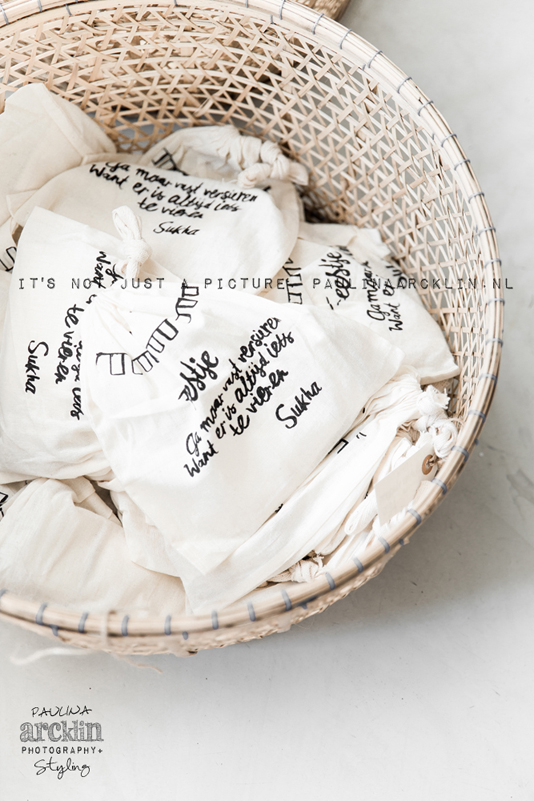 Ga maar vast versieren
Want er is altijd iets
te vieren
Sukha
IT'S NOT JUST A PICTURE PAULINAARCKLIN.NL
eestje
Ga maar
Want
te vieren
Sukha
eestje
Ga maar vast versieren
Want er is altijd iets
te vieren
Sukha
PAULINA
arcklin
PHOTOGRAPHY+
Styling